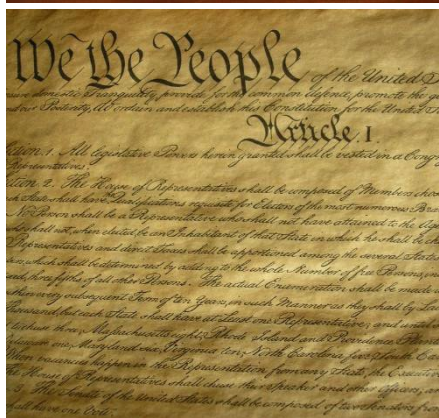 We the People of the United S
domestic Tranquility, provide for the common defence, promote the
Posterity, do ordain and establish this Constitution for the United S
Article. I.
ection. 1. All legislative Powers herein granted shall be vested in a Cong
Representatives.
ection. 2. The House of Representatives shall be composed of Members chos
State shall have Qualifications requisite for Electors of the most numerous Bra
No Person shall be a Representative who shall not have attained to the Age
who shall not, when elected, be an Inhabitant of that State in which he shall be ch
Representatives and direct Taxes shall be apportioned among the several States
which shall be determined by adding to the whole Number of free Persons, in
three fifths of all other Persons. The actual Enumeration shall be made w
within every subsequent Term of ten Years, in such Manner as they shall by La
Thousand, but each State shall have at Least one Representative; and until s
chuse three, Massachusetts eight, Rhode Island and Providence Plant
one, Maryland six, Virginia ten, North Carolina five, South Ca
When vacancies happen in the Representation from any State, the Executive
The House of Representatives shall chuse their Speaker and other Officers; an
3. The Senate of the United States shall be composed of two Senators fr
shall have one Vote.